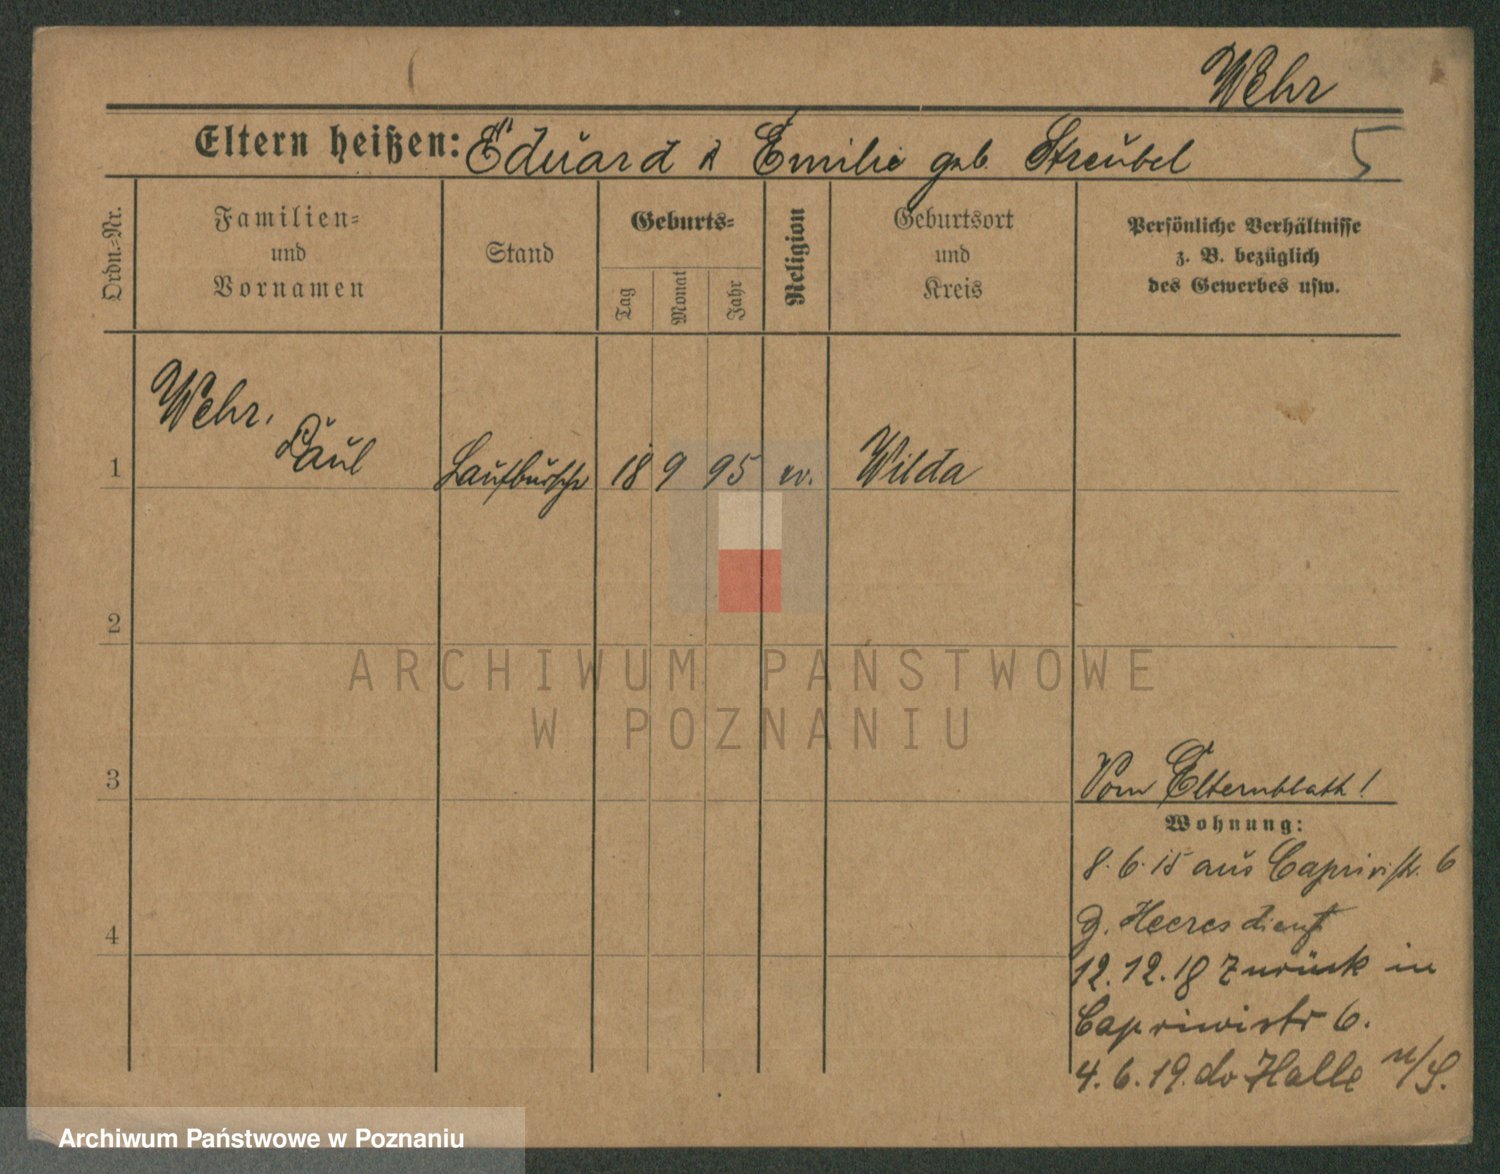 Wehr
Eltern heißen: Eduard u Emilie geb. Streubel
5
Ordn.-Nr.
Familien-
und
Vornamen
Stand
Geburts-
Tag
Monat
Jahr
Religion
Geburtsort
und
Kreis
Persönliche Verhältnisse
z. B. bezüglich
des Gewerbes usw.
1
Wehr,
Paul
Laufbursche
18 9 95
ev.
Wilda
2
3
4
ARCHIWUM PAŃSTWOWE
W POZNANIU
Vom Elternblatt!
Wohnung:
8.6.15 aus Caprivistr. 6
z. Heeresdienst
12.12.18 zurück in
Capriwistr 6.
4.6.19. Halle a/S.
Archiwum Państwowe w Poznaniu